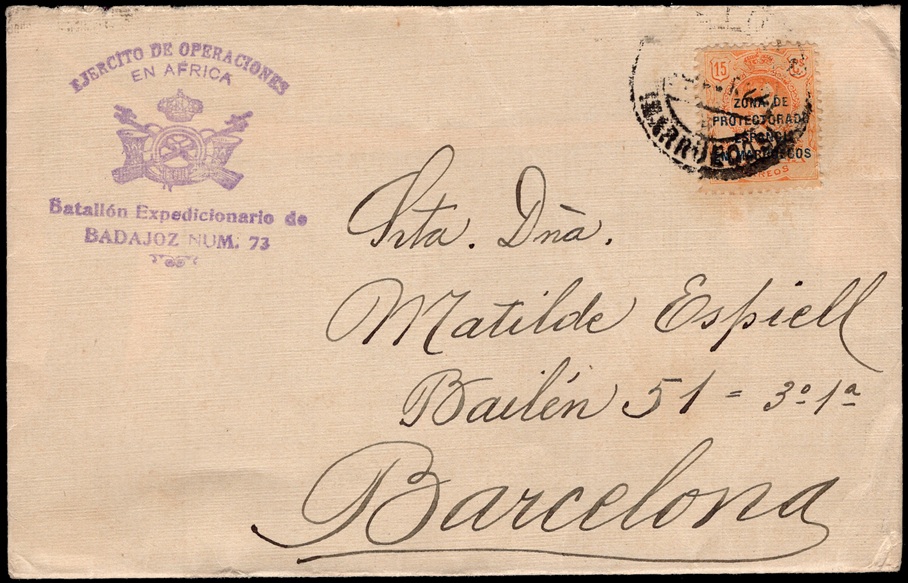 EJERCITO DE OPERACIONES
EN AFRICA
Batallón Expedicionario de
BADAJOZ NUM. 73
15
ZONA DE
PROTECTORADO
ESPAÑOL
EN MARRUECOS
CORREOS
(MARRUECOS)
Srta. Dña.
Matilde Espiell
Bailén 51 = 3º 1ª
Barcelona